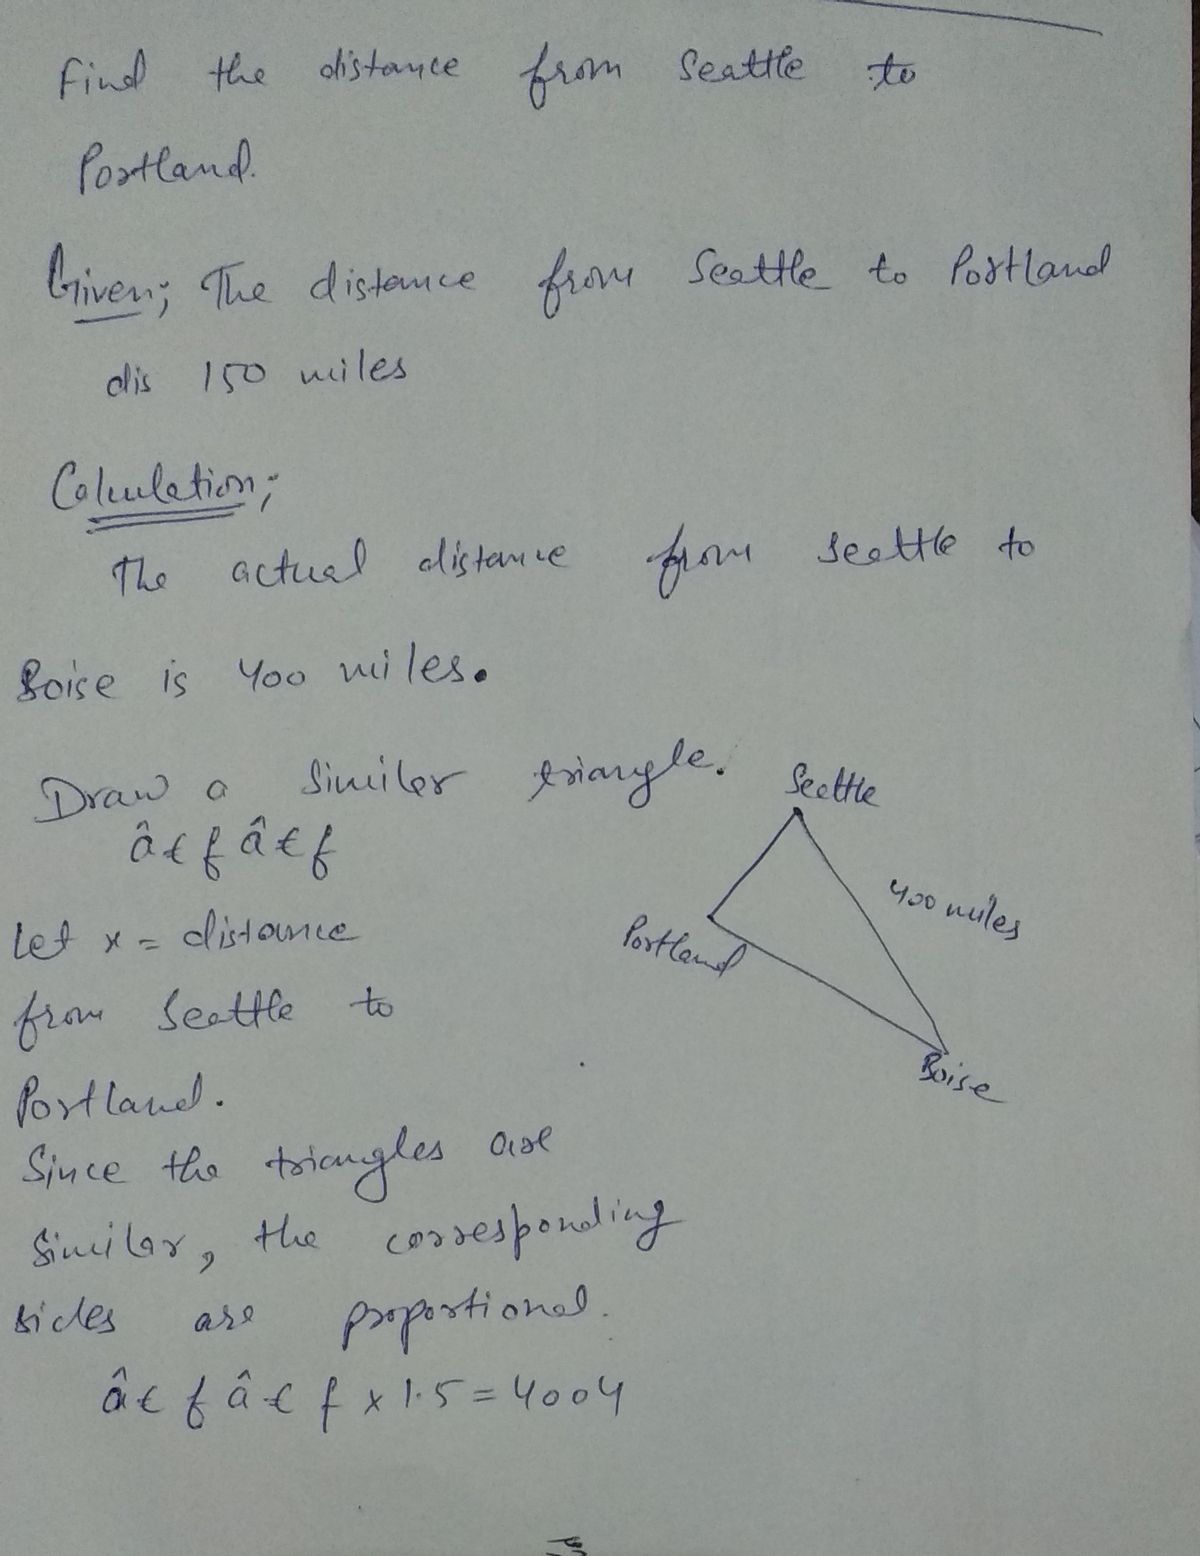 Find the distance from Seattle to
Portland.
Given; The distance from Seattle to Portland
dis 150 miles
Calculation;
The actual distance from Seattle to
Boise is 400 miles.
Draw a Similar triangle.
â € f â € f
Seattle
400 miles
Portland
Boise
Let x = distance
from Seattle to
Portland.
Since the triangles are
Similar, the corresponding
sides are proportional.
â € f â € f x 1.5 = 4004